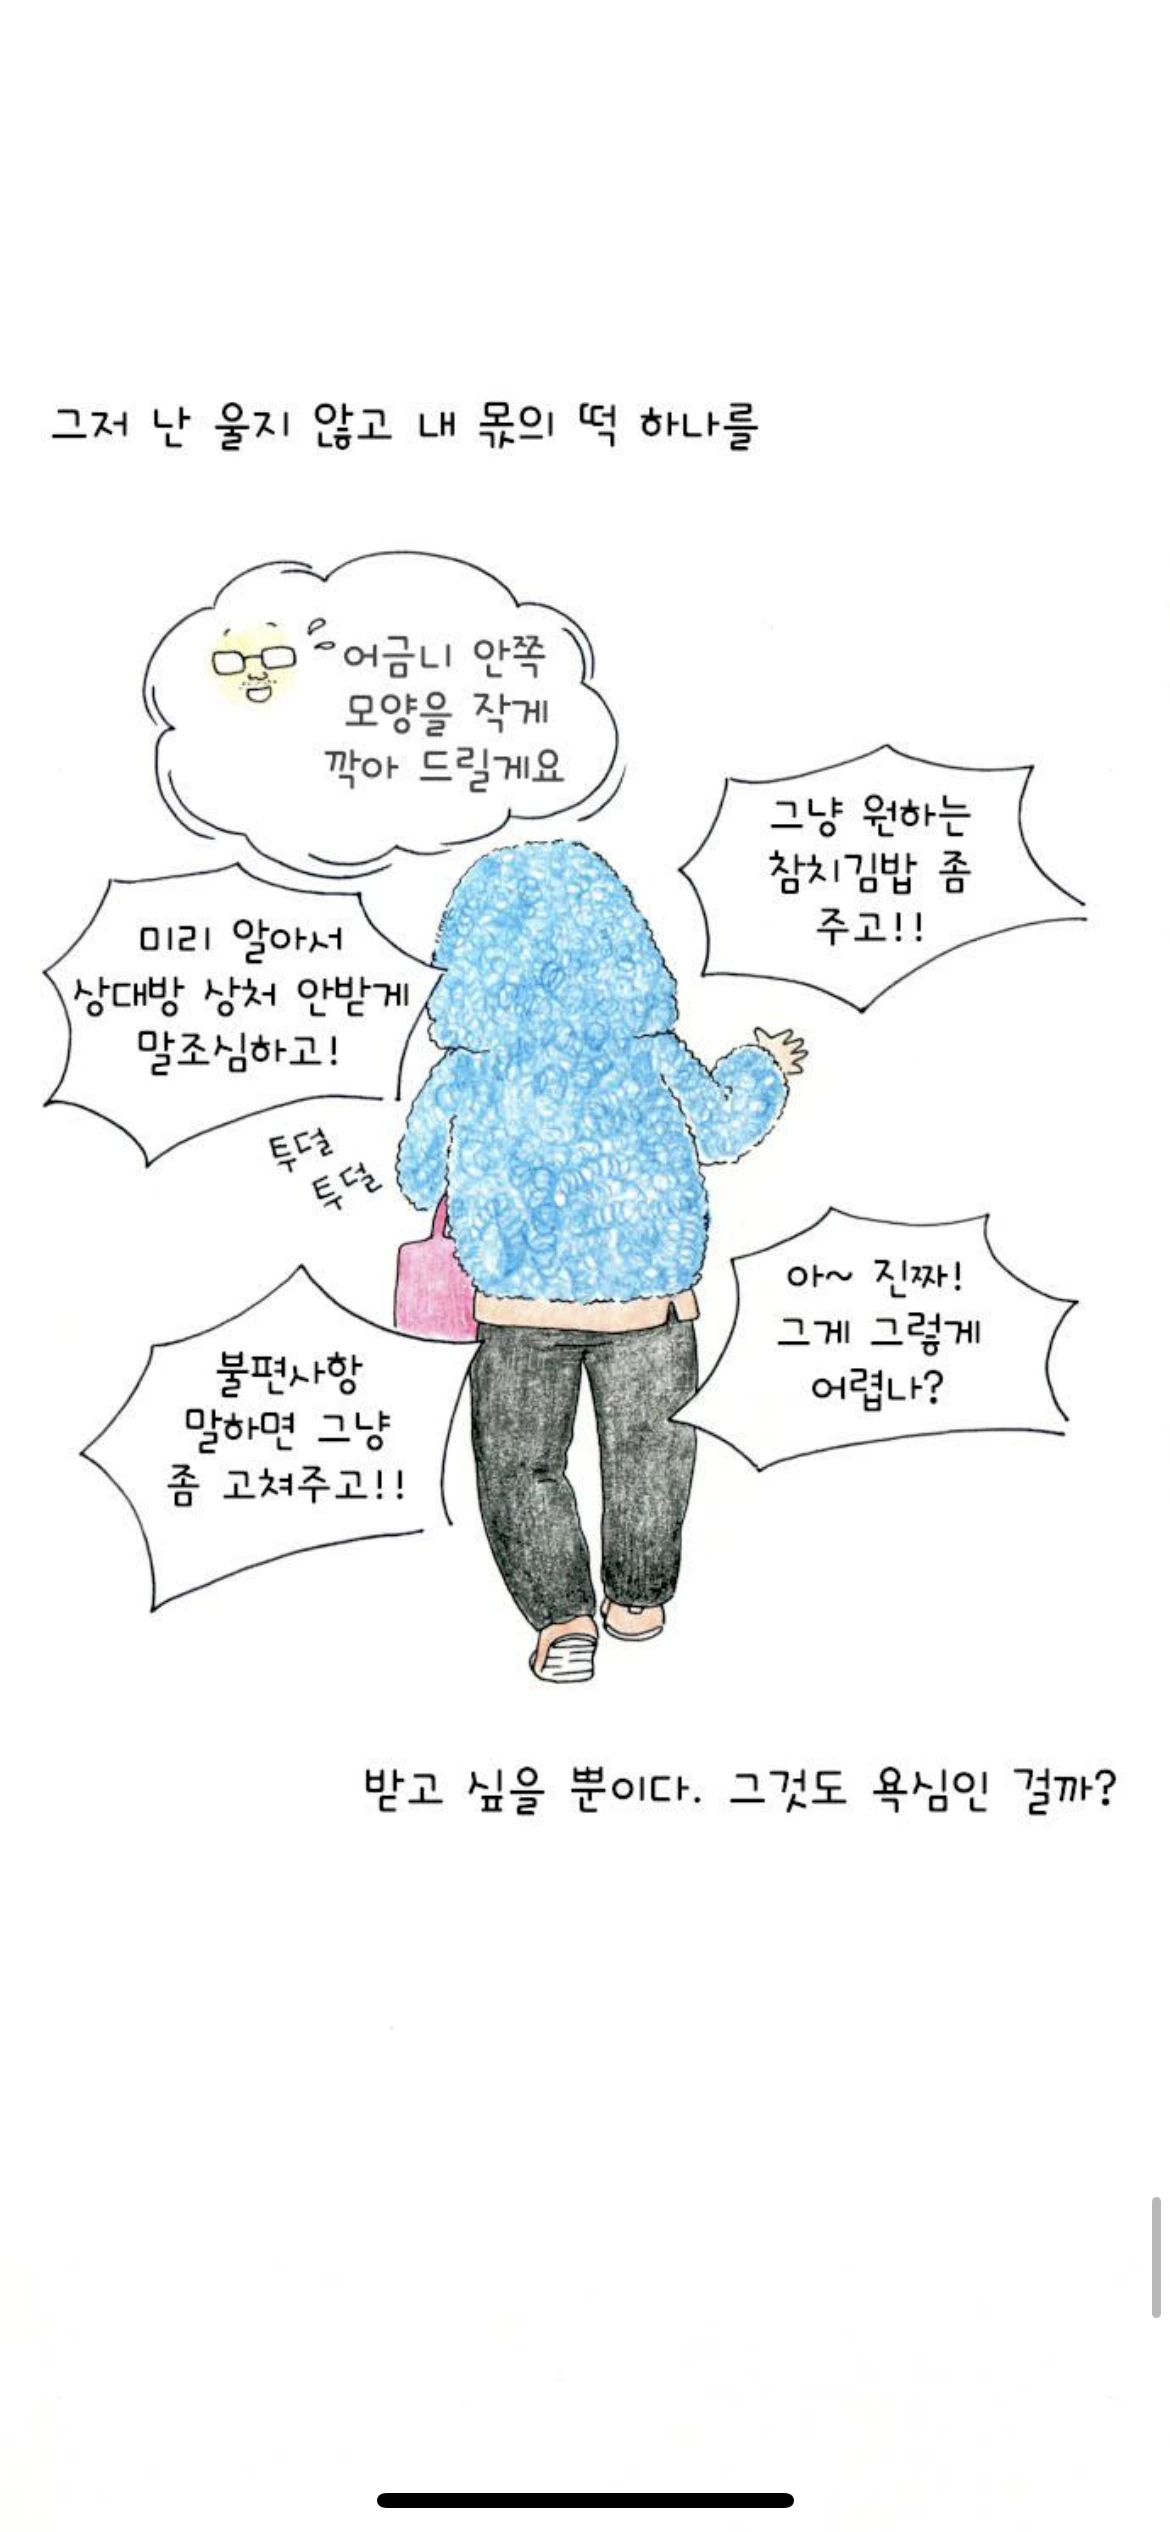 그저 난 울지 않고 내 몫의 떡 하나를
어금니 안쪽
모양을 작게
깍아 드릴게요
그냥 원하는
참치김밥 좀
주고!!
미리 알아서
상대방 상처 안받게
말조심하고!
투덜
투덜
아~ 진짜!
그게 그렇게
어렵나?
불편사항
말하면 그냥
좀 고쳐주고!!
받고 싶을 뿐이다. 그것도 욕심인 걸까?